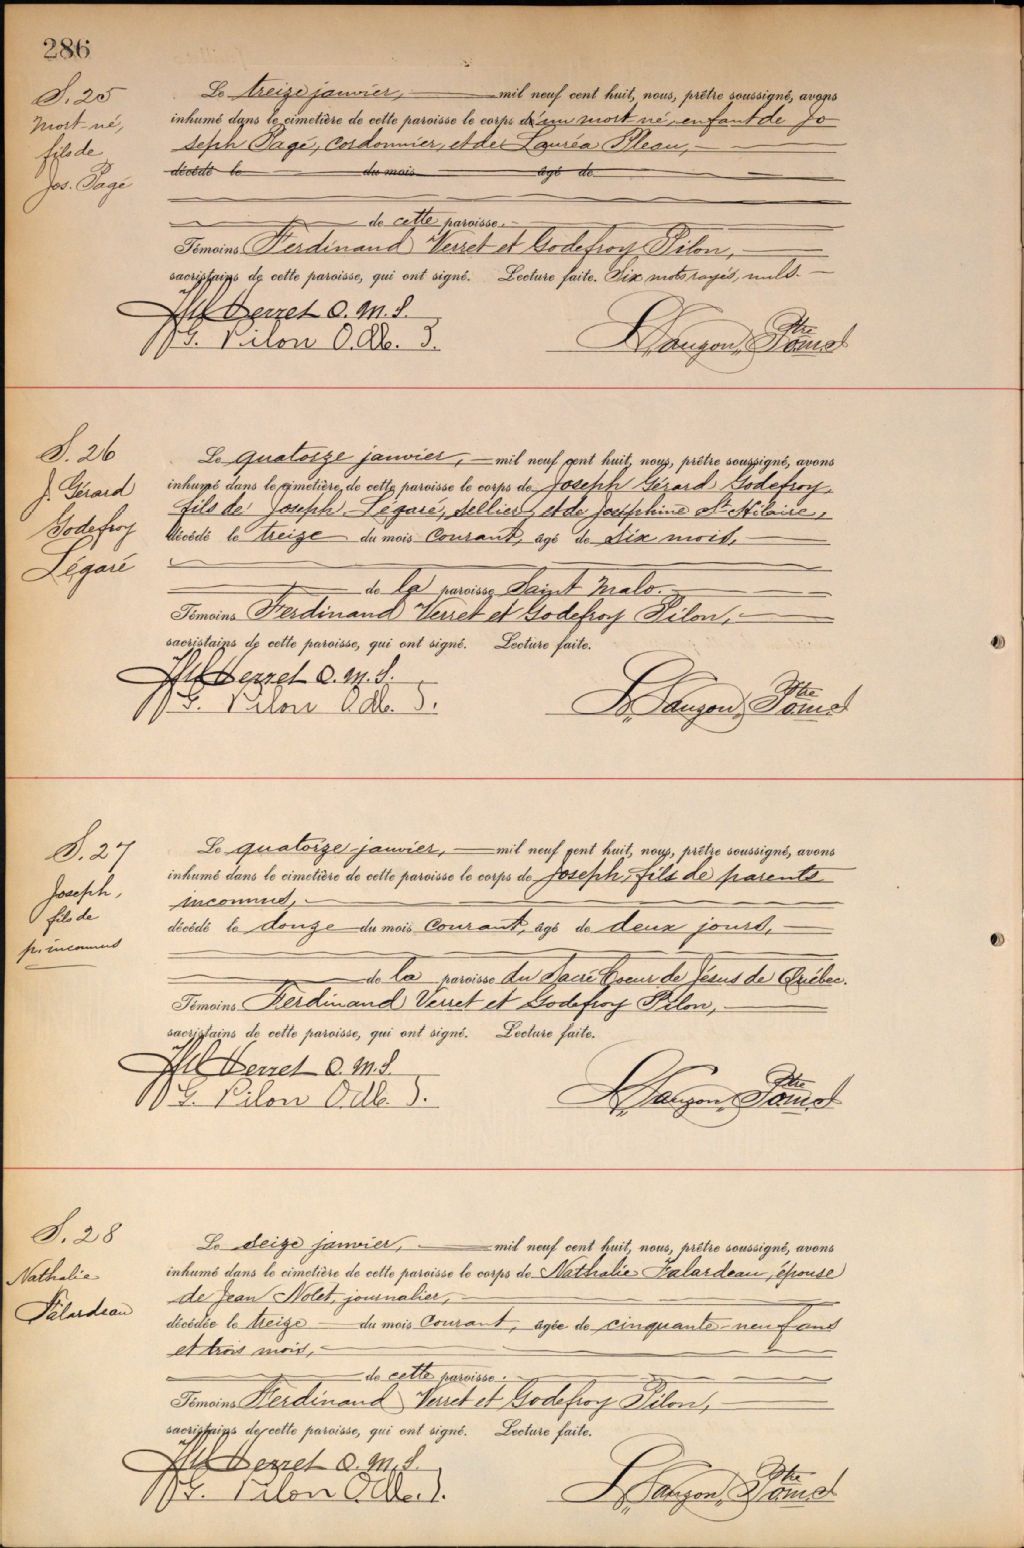 286
S. 25
Mort-né,
fils de
Jos. Pagé
Le treize janvier, mil neuf cent huit, nous, prêtre soussigné, avons
inhumé dans le cimetière de cette paroisse le corps d'un mort né, enfant de Jo
seph Pagé, cordonnier, et de Lauréa Pleau,
décédé le du mois âgé de
de cette paroisse.
Témoins Ferdinand Verret et Godefroy Pilon,
sacristains de cette paroisse, qui ont signé. Lecture faite. Six mots rayés, nuls.
Verret O.M.I.
G. Pilon O.M. I.
Ptre
O.M.I
S. 26
J. Gérard
Godefroy
Légaré
Le quatorze janvier, mil neuf cent huit, nous, prêtre soussigné, avons
inhumé dans le cimetière de cette paroisse le corps de Joseph Gérard Godefroy,
fils de Joseph Légaré, sellier, et de Joséphine St-Hilaire,
décédé le treize du mois courant, âgé de six mois,
de la paroisse Saint Malo.
Témoins Ferdinand Verret et Godefroy Pilon,
sacristains de cette paroisse, qui ont signé. Lecture faite.
Verret O.M.I.
G. Pilon O.M. I.
Ptre
O.M.I
S. 27
Joseph,
fils de
p. inconnus
Le quatorze janvier, mil neuf cent huit, nous, prêtre soussigné, avons
inhumé dans le cimetière de cette paroisse le corps de Joseph, fils de parents
inconnus,
décédé le douze du mois courant, âgé de deux jours,
de la paroisse du Sacré Coeur de Jésus de Québec.
Témoins Ferdinand Verret et Godefroy Pilon,
sacristains de cette paroisse, qui ont signé. Lecture faite.
Verret O.M.I.
G. Pilon O.M. I.
Ptre
O.M.I
S. 28
Nathalie
Falardeau
Le seize janvier, mil neuf cent huit, nous, prêtre soussigné, avons
inhumé dans le cimetière de cette paroisse le corps de Nathalie Falardeau, épouse
de Jean Nolet, journalier,
décédée le treize du mois courant, âgée de cinquante-neuf ans
et trois mois,
de cette paroisse.
Témoins Ferdinand Verret et Godefroy Pilon,
sacristains de cette paroisse, qui ont signé. Lecture faite.
Verret O.M.I.
G. Pilon O.M. I.
Ptre
O.M.I